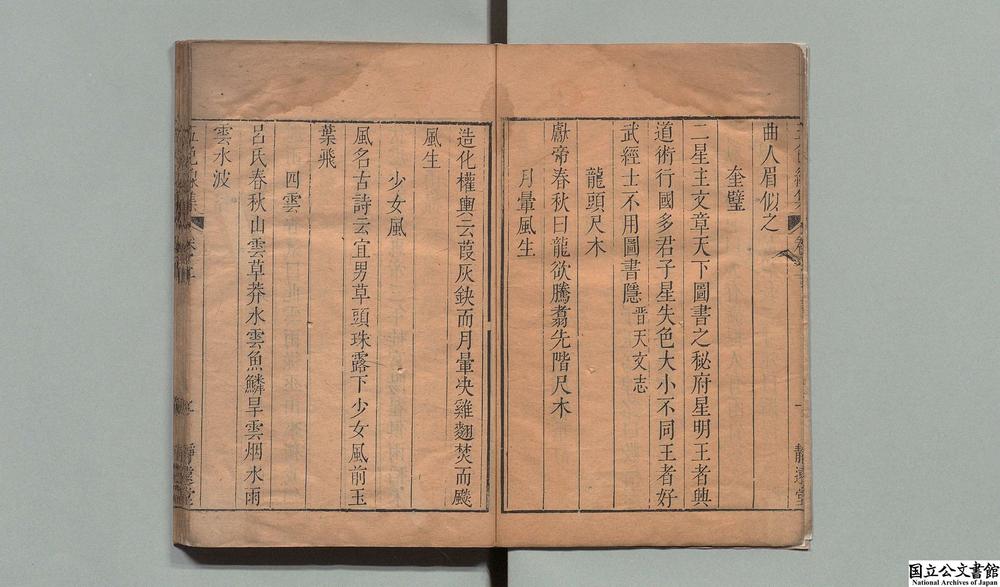 曲人眉似之
奎璧
二星主文章天下圖書之秘府星明王者興
道術行國多君子星失色大小不同王者好
武經士不用圖書隱晋天文志
龍頭尺木
獻帝春秋曰龍欲騰翥先階尺木
月暈風生
造化權輿云葭灰鈌而月暈决雞翅焚而颷
風生
少女風
風名古詩云宜男草頭珠露下少女風前玉
葉飛
四雲
呂氏春秋山雲草莽水雲魚鱗旱雲烟水雨
雲水波
靜遠堂
国立公文書館
National Archives of Japan